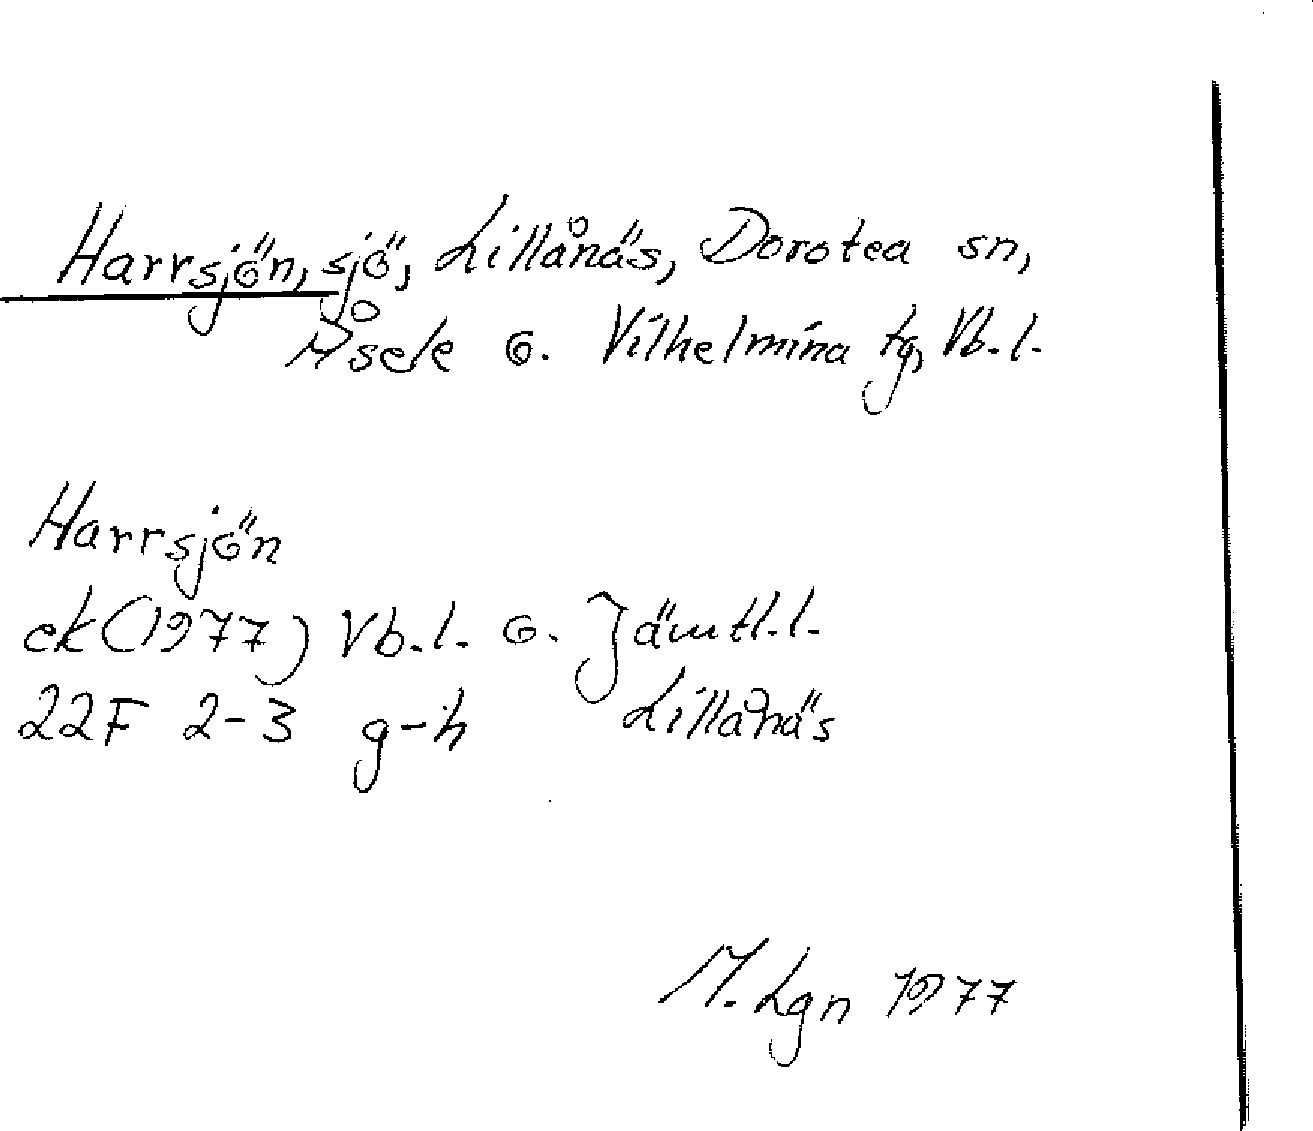 Harrsjön, sjö, Lillånäs, Dorotea sn,
Åsele o. Vilhelmina tg, Vb.l.
Harrsjön
ek (1977) Vb.l. o. Jämtl.l.
22F 2-3 g-h Lillånäs
M. Lgn 1977